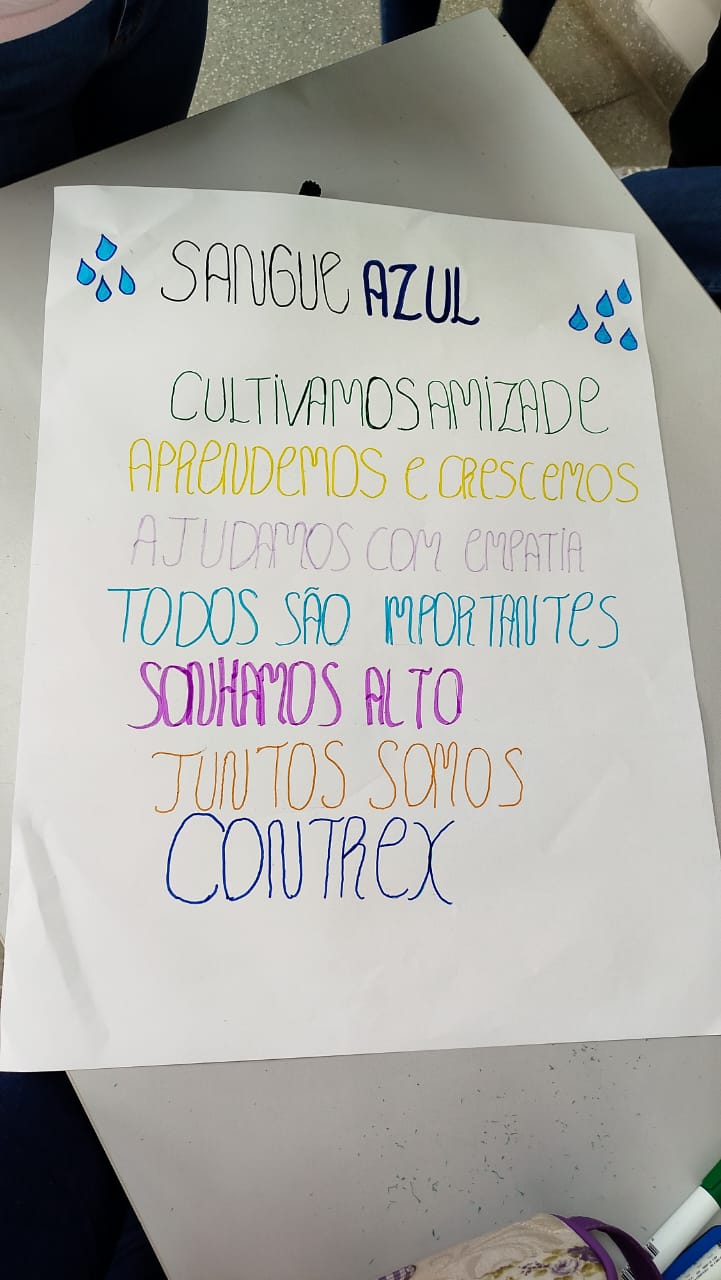 SANGUE AZUL
CULTIVAMOS AMIZADE
APRENDEMOS E CRESCEMOS
AJUDAMOS COM EMPATIA
TODOS SÃO IMPORTANTES
SONHAMOS ALTO
JUNTOS SOMOS
CONTREX